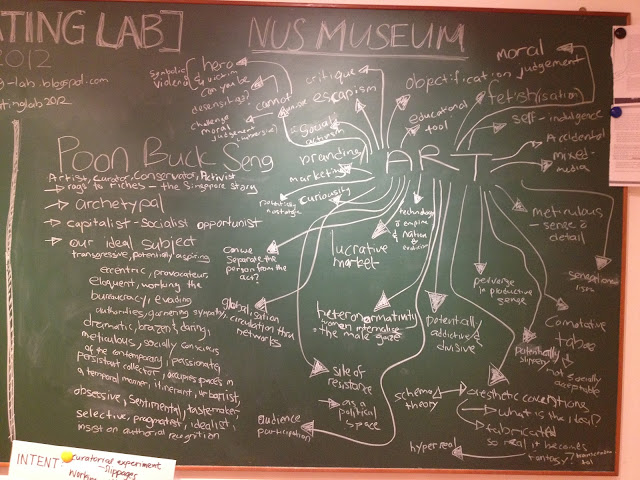 ATING LAB]
2012
g-lab.blogspot.com
tinglab2012
NUS MUSEUM
symbolic
violence
hero
& victim
can you be
desensitised?
cannot
challenge
moral
judgement
critique
escapism
social
activism
branding
marketing
curiousity
potentially
nostalgic
objectification
educational
tool
moral
judgement
fetish(isation)
self-indulgence
Accidental
mixed-
media
ART
Poon Buck Seng
Artist, Curator, Conservator, Activist
→ rags to riches - the Singapore story
→ archetypal
→ capitalist-socialist opportunist
→ our ideal subject
transgressive, potentially aspiring
eccentric, provocateur
eloquent, working the
bureaucracy, evading
authorities, garnering sympathy,
dramatic, brazen & daring,
meticulous, socially conscious
of the contemporary, passionate,
persistent collector, occupies spaces in
a temporal manner, itinerant, urbanist,
obsessive, sentimental, tastemaker
selective, pragmatist, idealist,
insist on authorial recognition
can we
separate the
person from the
act?
lucrative
market
technology
empire
& nation
&
meticulous
- sense of
detail
sensationa
lism
perverse
in productive
sense
globalisation
circulation thru
networks
heteronormativity
women internalise
the male gaze
potentially
addictive &
divisive
connotative
taboo
potentially
slippery &
not socially
acceptable
site of
resistance
as a
political
space
schema
theory
aesthetic conventions
what is the ideal?
fabricated
so real it becomes
fantasy?
hyperreal
audience
participation
INTENT: curatorial experiment
- slippages